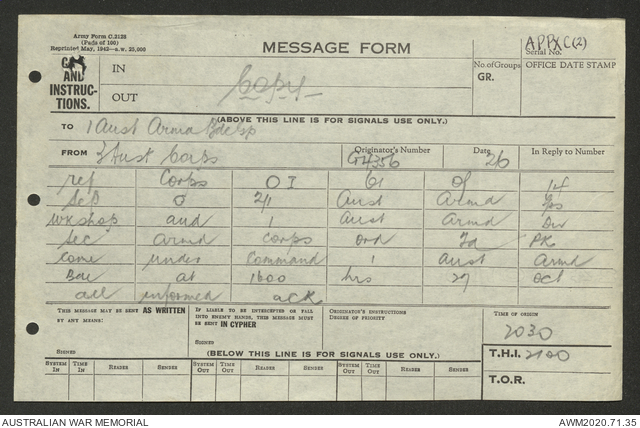 Army Form C.2128
(Pads of 100)
Reprinted May, 1942
MESSAGE FORM
APPX C(2)
Serial No.
AND INSTRUC-TIONS.
IN
OUT
Copy
No. of Groups
GR.
OFFICE DATE STAMP
(ABOVE THIS LINE IS FOR SIGNALS USE ONLY.)
TO 1 Aust Armd Bde Gp
FROM 3 Aust Corps
Originator's Number
G4356
Date
26
In Reply to Number
ref Corps OI 61 of 14
Sep 2/1 Aust Armd
wkshop and 1 Aust Armd Div
Sec Armd Corps Ord Fd PK
come under Command 1 Aust Armd
Bde at 1600 hrs 27 Oct
all informed ack
THIS MESSAGE MAY BE SENT AS WRITTEN
BY ANY MEANS:
SIGNED
IF LIABLE TO BE INTERCEPTED OR FALL
INTO ENEMY HANDS, THIS MESSAGE MUST
BE SENT IN CYPHER
SIGNED
ORIGINATOR'S INSTRUCTIONS
DEGREE OF PRIORITY
TIME OF ORIGIN
2030
(BELOW THIS LINE IS FOR SIGNALS USE ONLY.)
T.H.I. 2100
T.O.R.
SYSTEM IN
TIME IN
READER
SENDER
SYSTEM OUT
TIME OUT
READER
SENDER
SYSTEM OUT
TIME OUT
READER
SENDER
AUSTRALIAN WAR MEMORIAL
AWM2020.71.35